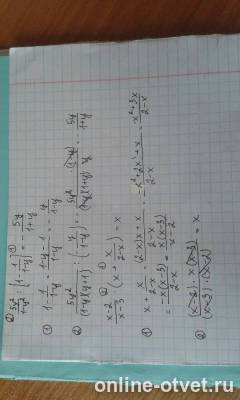 б) 5y²/(1-y²) : (1 - 1/(1-y)) = - 5y/(1+y)
① 1 - 1/(1-y) = (1-y-1)/(1-y) = - y/(1-y)
② 5y²/((1-y)(y+1)) : (- y/(1-y)) = - 5y²·(1-y)/((1-y)(1+y)·y) = - 5y/(1+y)
(x-2)/(x-3) · (x + x/(2-x)) = x
① x + x/(2-x) = ((2-x)x+x)/(2-x) = (-x²+2x+x)/(2-x) = (-x²+3x)/(2-x)
= -x(x-3)/(2-x) = x(x-3)/(x-2)
② (x-2)·x(x-3)/((x-3)·(x-2)) = x
online-otvet.ru